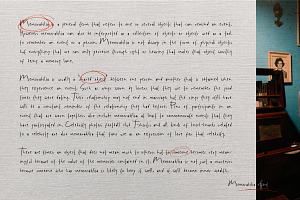 Memorabilia, a general term that refers to one or several objects that can remind an event.
However memorabilia can also be interpreted as a collection of objects or objects used as a tool
to remember an event or a person. Memorabilia is not always in the form of physical objects
but everything that we can only perceive through sight or hearing that makes that object worthy
of being a memory lane.
Memorabilia is usually a shared object between one person and another that is obtained when
they experience an event. Such as rings given by lovers that they use to remember the good
times they were dating. Their relationship may not end in marriage but the rings they still have
will be a constant reminder of the relationship they had together. Pins of participants in an
event that are worn together also include memorabilia as tools to commemorate events that they
have participated in. Celebrity photos, football shirt, tickets and all kinds of hand-trades related
to a celebrity are also memorabilia that fans use as an expression of love for that celebrity.
There are times an object that does not mean much to others but to someone becomes very mean-
ingful because of the value of the memories contained in it. Memorabilia is not just a souvenir
because someone who has memorabilia is likely to keep it well and of still become inner wealth.
Memorabilia